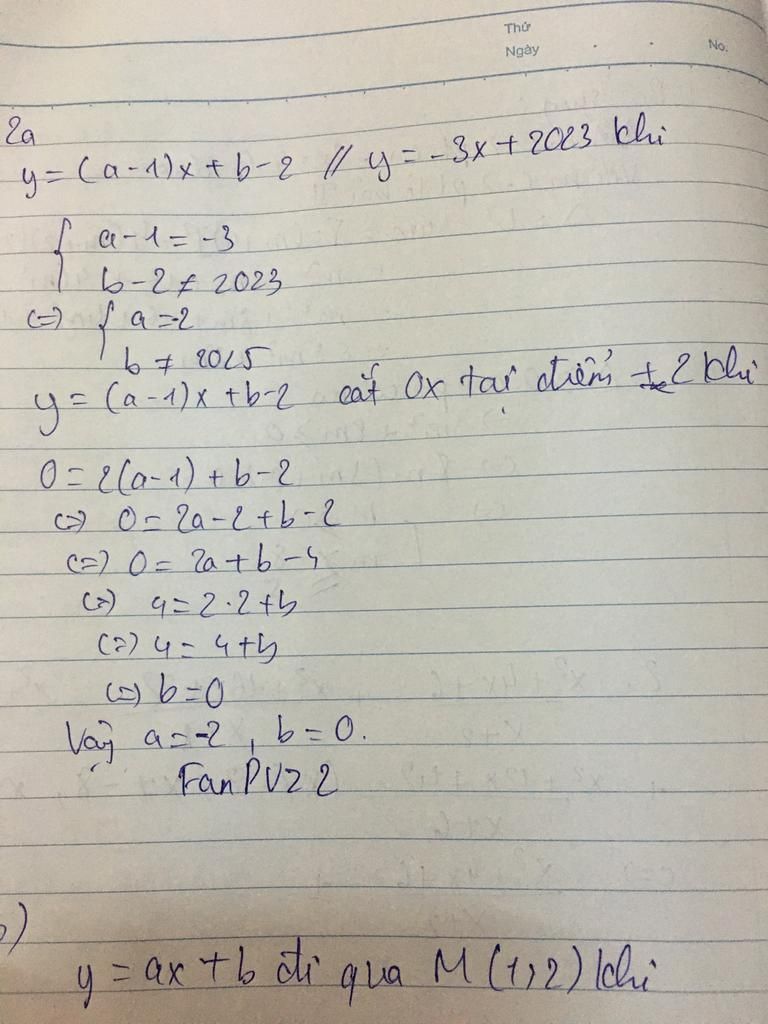 Thứ
Ngày
No.
2a
y = (a-1)x + b-2 // y = -3x + 2023 khi
{ a-1 = -3
b-2 ≠ 2023
(=) { a = -2
b ≠ 2025
y = (a-1)x + b-2 cắt Ox tại điểm 2 khi
0 = 2(a-1) + b-2
(=) 0 = 2a-2+b-2
(=) 0 = 2a+b-4
(=) 4 = 2.2+b
(=) 4 = 4+b
(=) b = 0
Vậy a = -2, b = 0.
FanPVZ 2
b)
y = ax + b đi qua M (1,2) khi